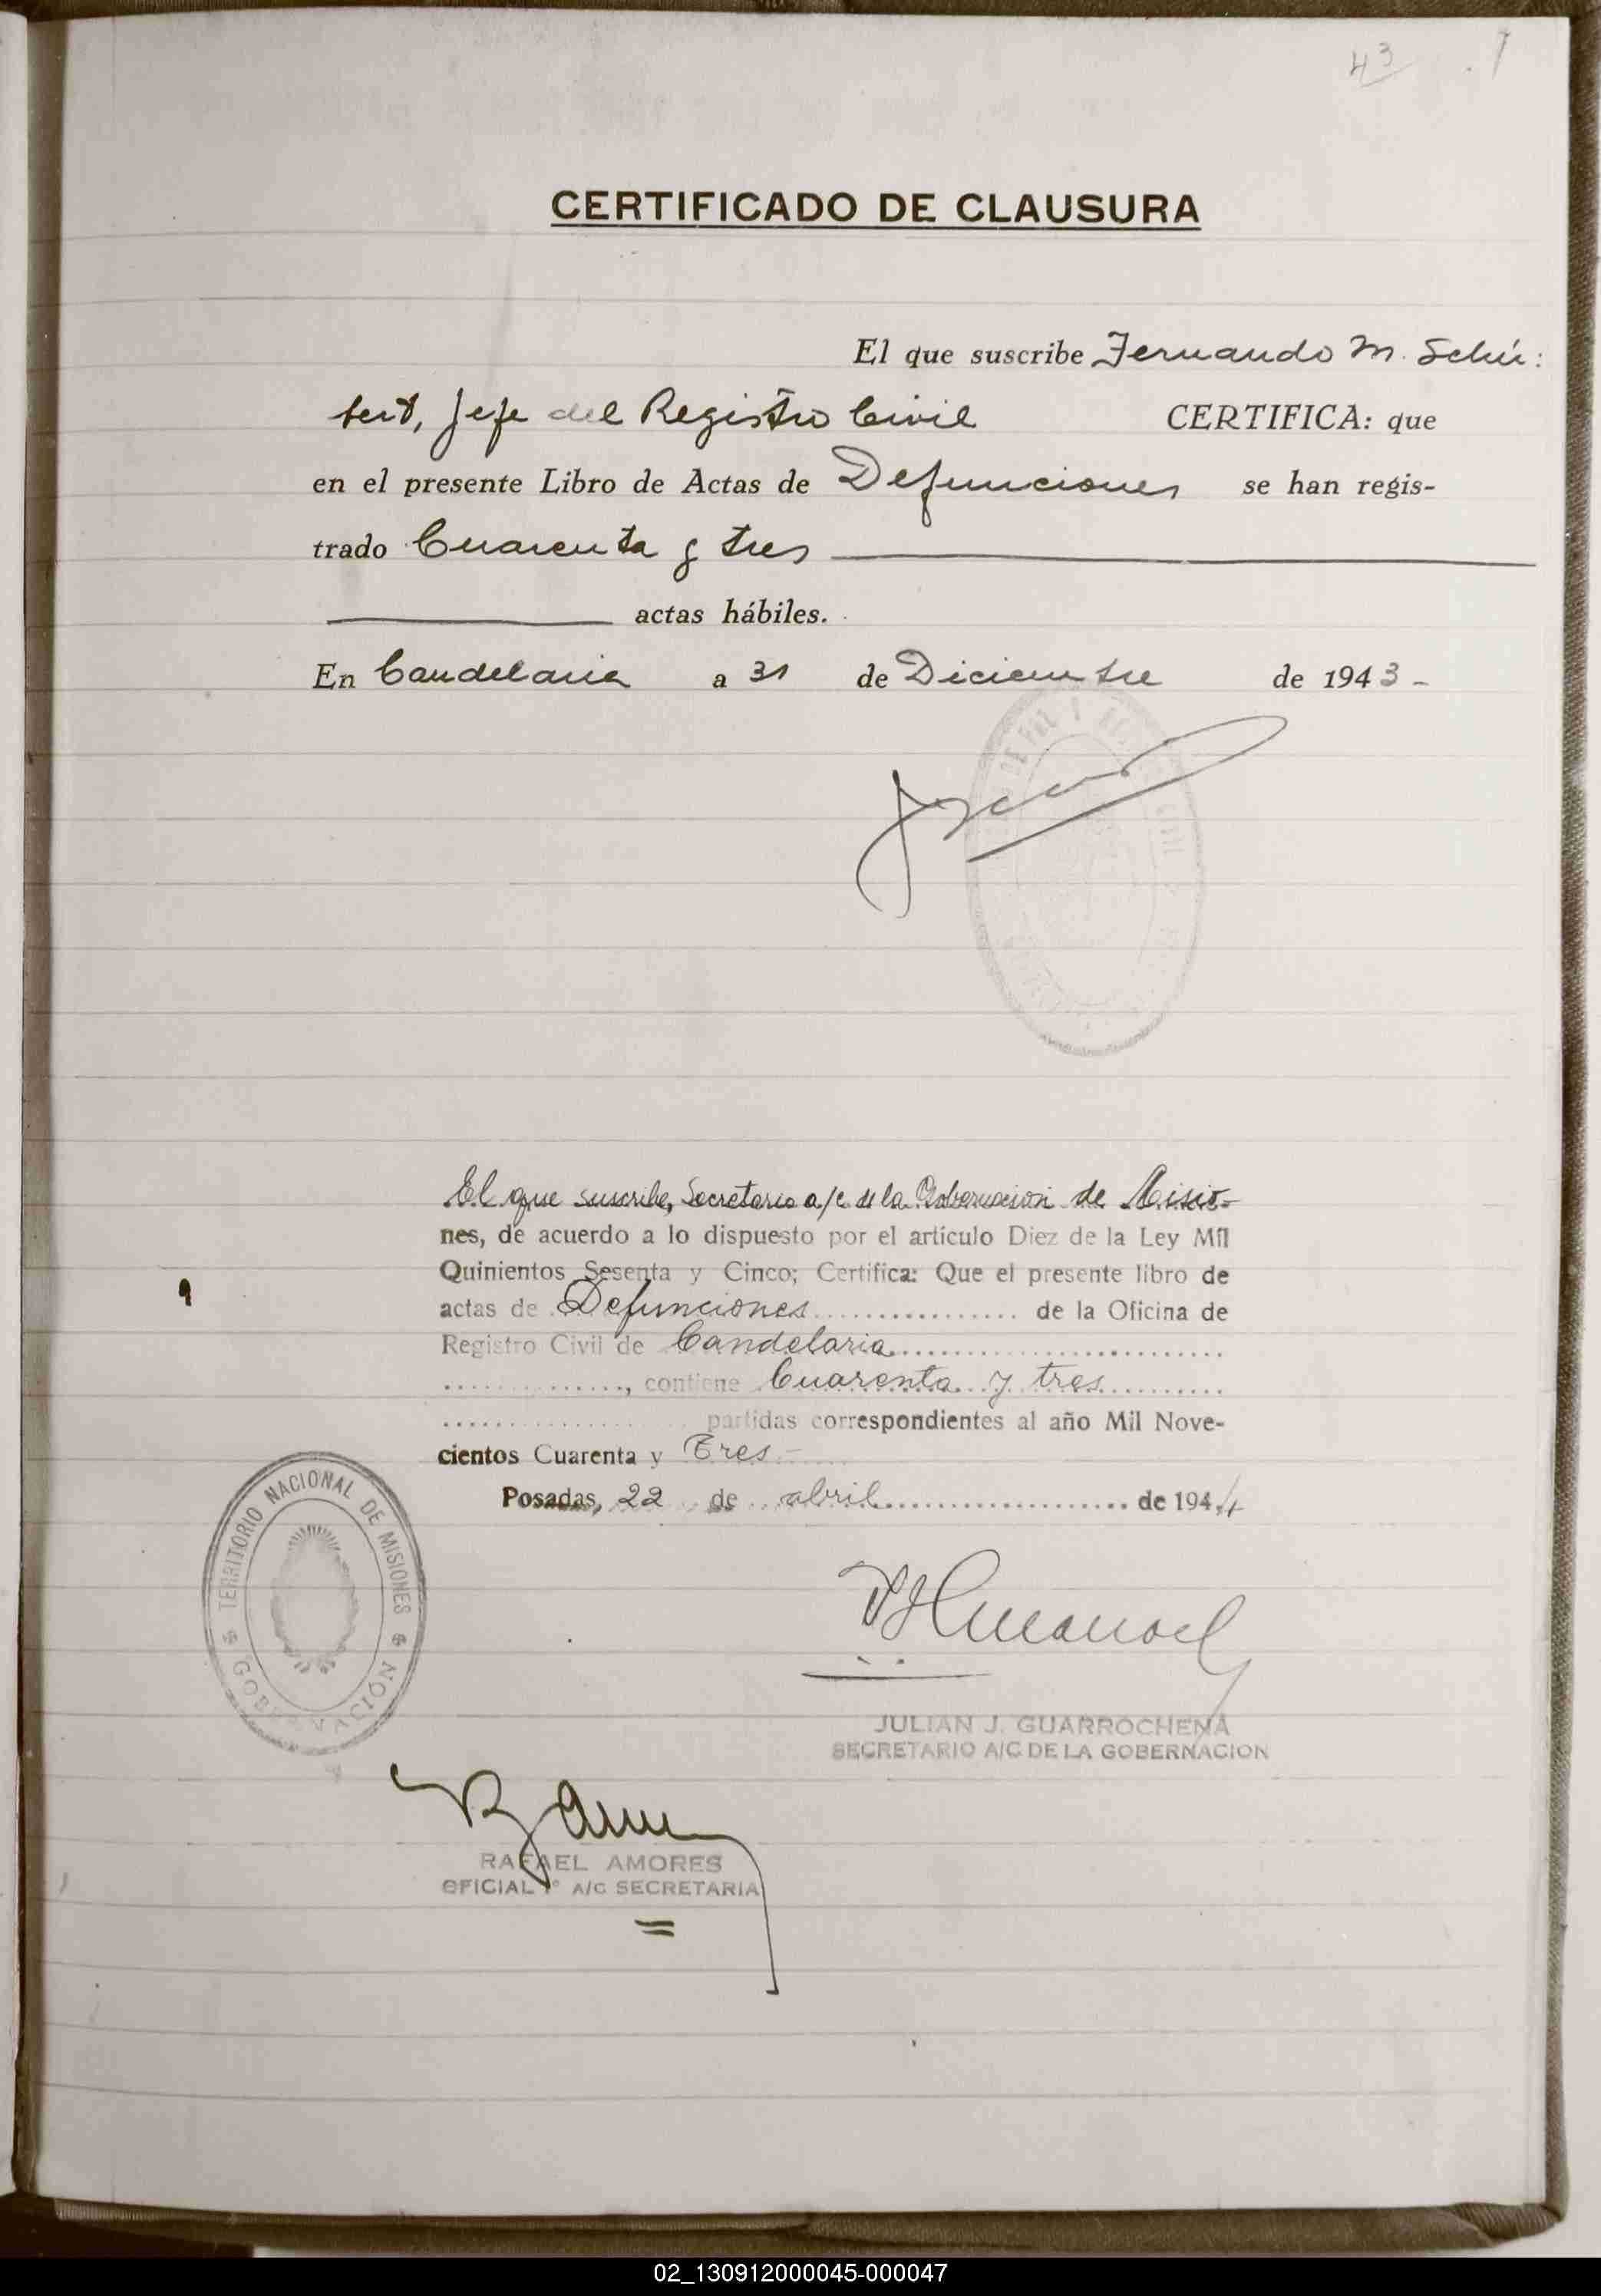 43
CERTIFICADO DE CLAUSURA
El que suscribe Fernando M. Schü:
bert, Jefe del Registro Civil CERTIFICA: que
en el presente Libro de Actas de Defunciones se han regis-
trado Cuarenta y tres
actas hábiles.
En Candelaria a 31 de Diciembre de 1943-
El que suscribe, Secretario a/c de la Gobernación de Misio-
nes, de acuerdo a lo dispuesto por el artículo Diez de la Ley Mil
Quinientos Sesenta y Cinco; Certifica: Que el presente libro de
actas de Defunciones de la Oficina de
Registro Civil de Candelaria
, contiene Cuarenta y tres
partidas correspondientes al año Mil Nove-
cientos Cuarenta y Tres.-
Posadas, 22 de abril de 1944
TERRITORIO NACIONAL DE MISIONES
GOBERNACIÓN
JULIAN J. GUARROCHENA
SECRETARIO A/C DE LA GOBERNACION
RAFAEL AMORES
OFICIAL 1° A/C SECRETARIA
02_130912000045-000047